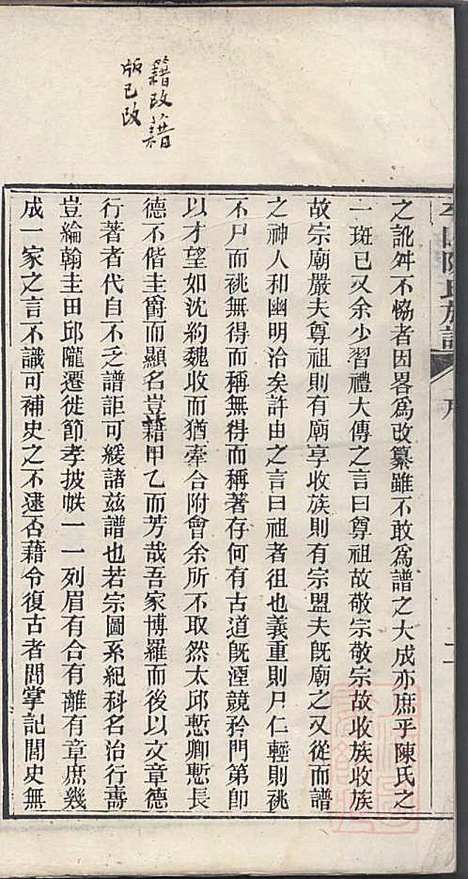 籍改藉
版已改
之訛舛不恊者因畧爲改纂雖不敢爲譜之大成亦庶乎陳氏之
一斑已又余少習禮大傳之言曰尊祖故敬宗敬宗故收族收族
故宗廟嚴夫尊祖則有廟享收族則有宗盟夫旣廟之又從而譜
之神人和幽明治矣許由之言曰祖者徂也義重則尸仁輕則祧
不尸而祧無得而稱無得而稱著存何有古道旣湮競矜門第卽
以才望如沈約魏收而猶牽合附會余所不取然太邱慙卿慙長
德不偕圭爵而顯名豈籍甲乙而芳哉吾家博羅而後以文章德
行著者代自不乏譜詎可緩諸兹譜也若宗圖系紀科名治行壽
豈綸翰圭田邱隴遷徙節孝披帙一一列眉有合有離有章庶幾
成一家之言不識可補史之不逮否藉令復古者閭掌記閭史無
陳氏族譜
序
二